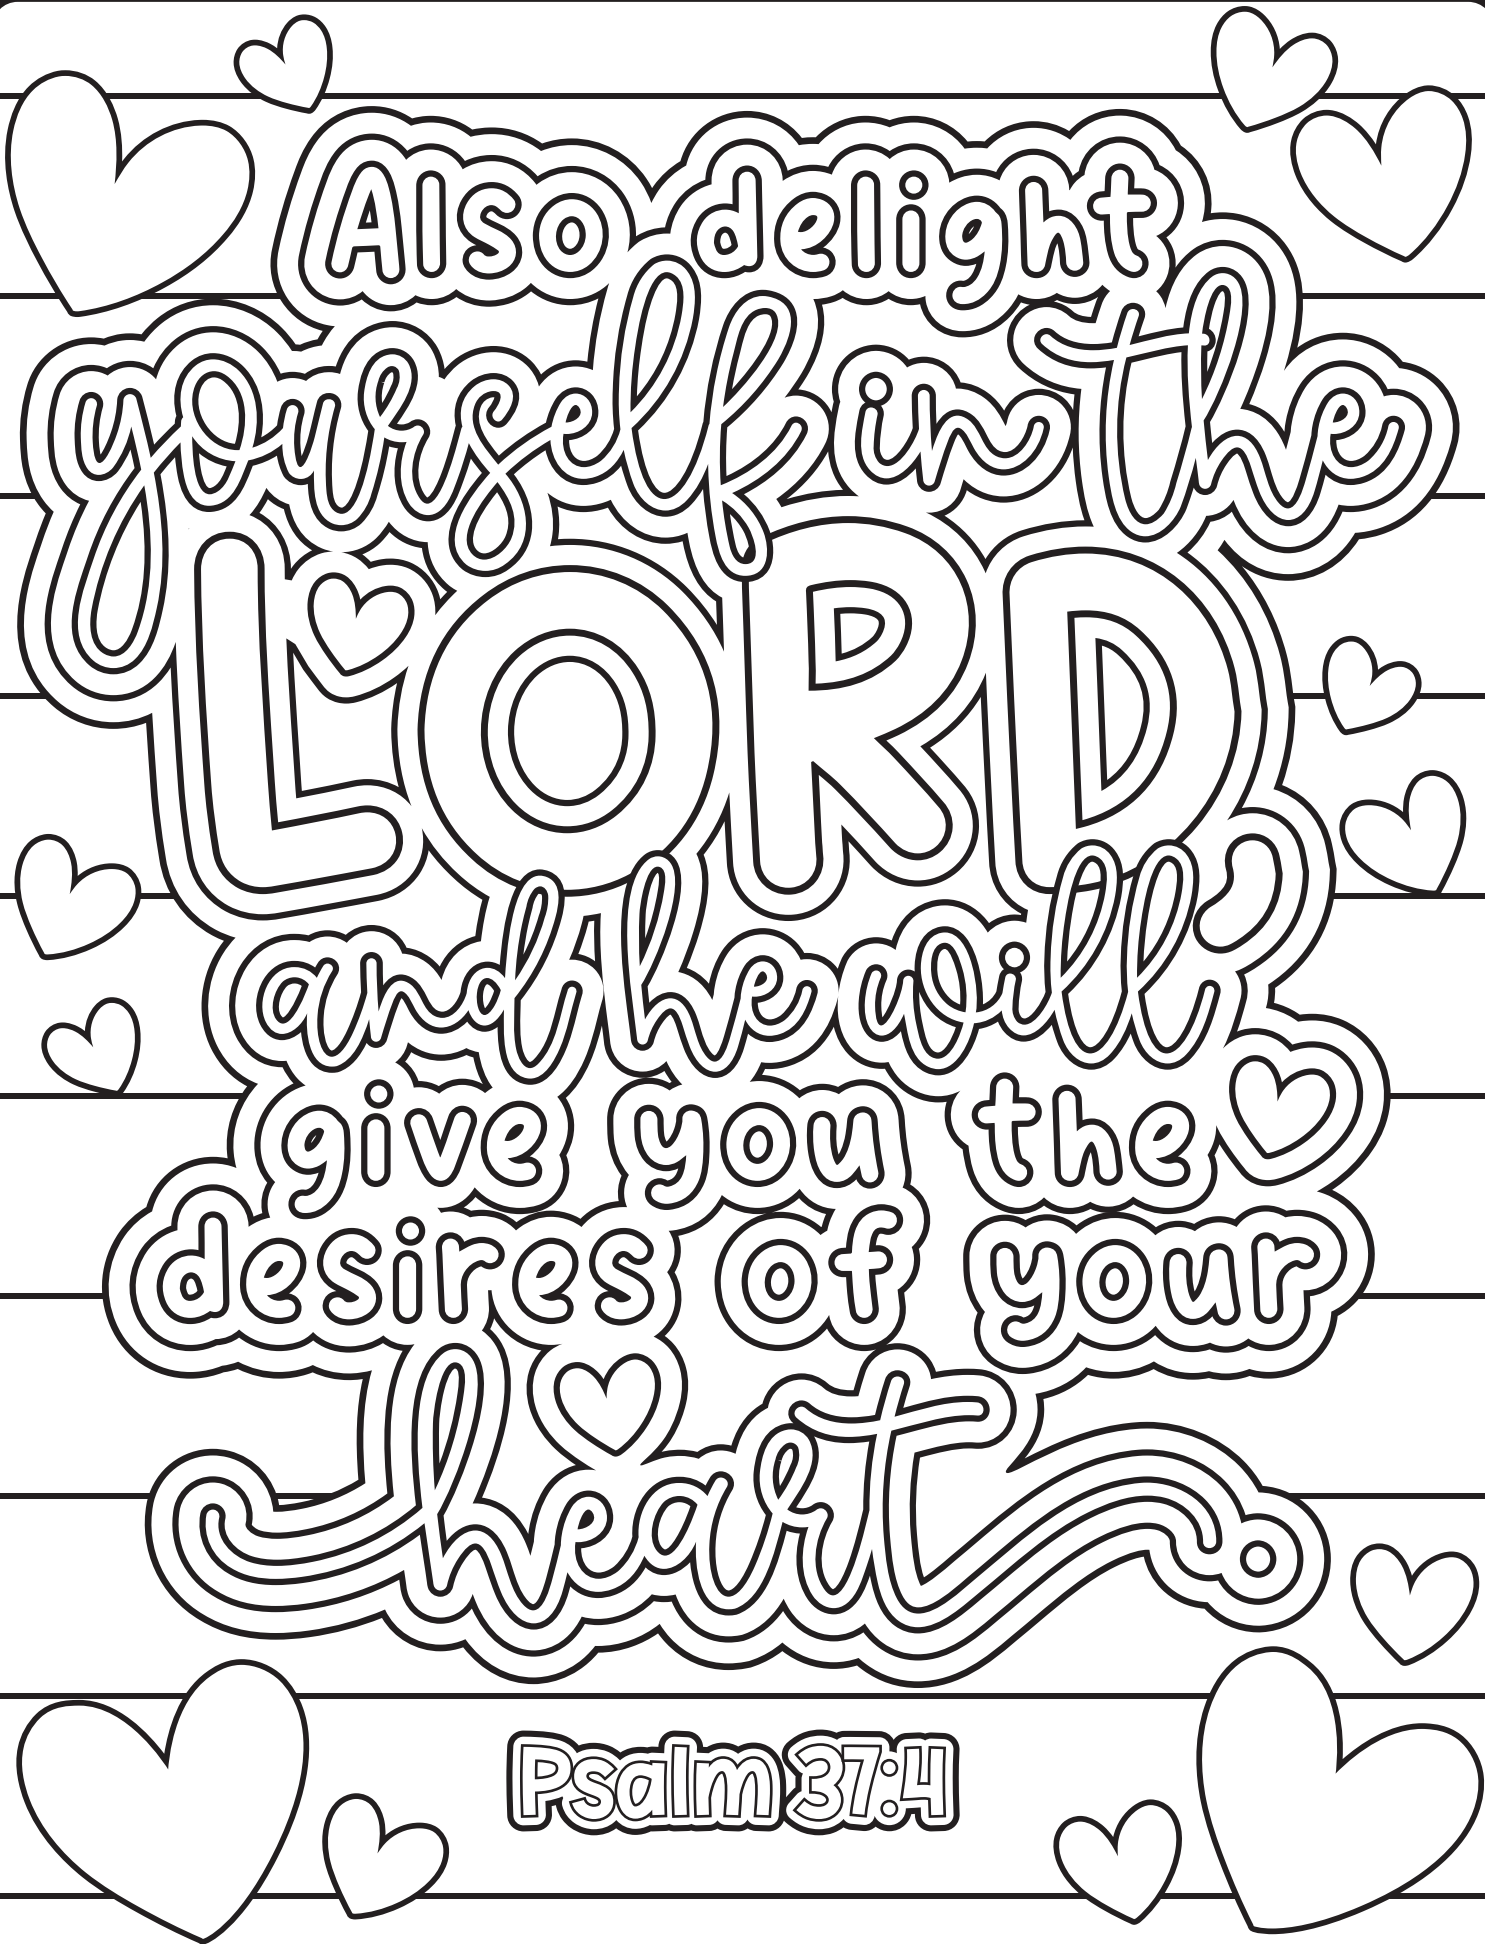 Also delight
yourself in the
LORD,
and he will
give you the
desires of your
heart.
Psalm 37:4